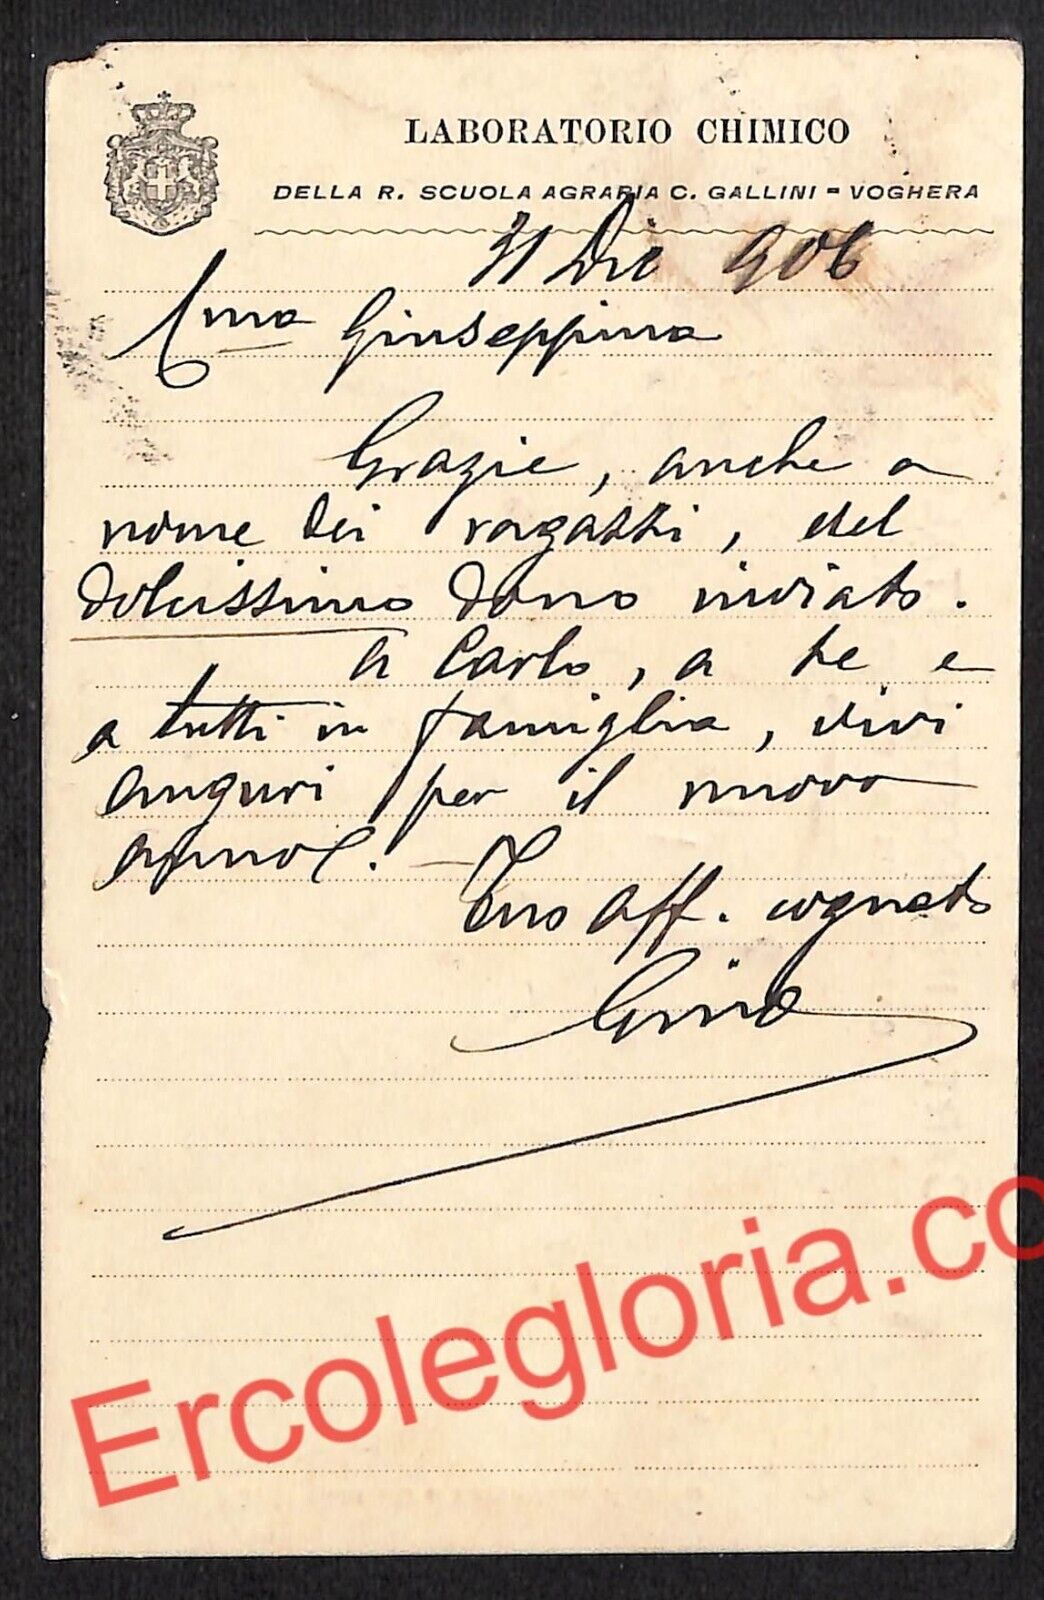 LABORATORIO CHIMICO
DELLA R. SCUOLA AGRARIA C. GALLINI - VOGHERA
31 Dic 906
Giuseppina
Grazie, anche a
nome dei ragazzi, del
dolcissimo dono inviato.
A Carlo, a te e
a tutti in famiglia, vivi
auguri per il nuovo
anno.
Tuo aff. cognato
Gino
Ercolegloria.co